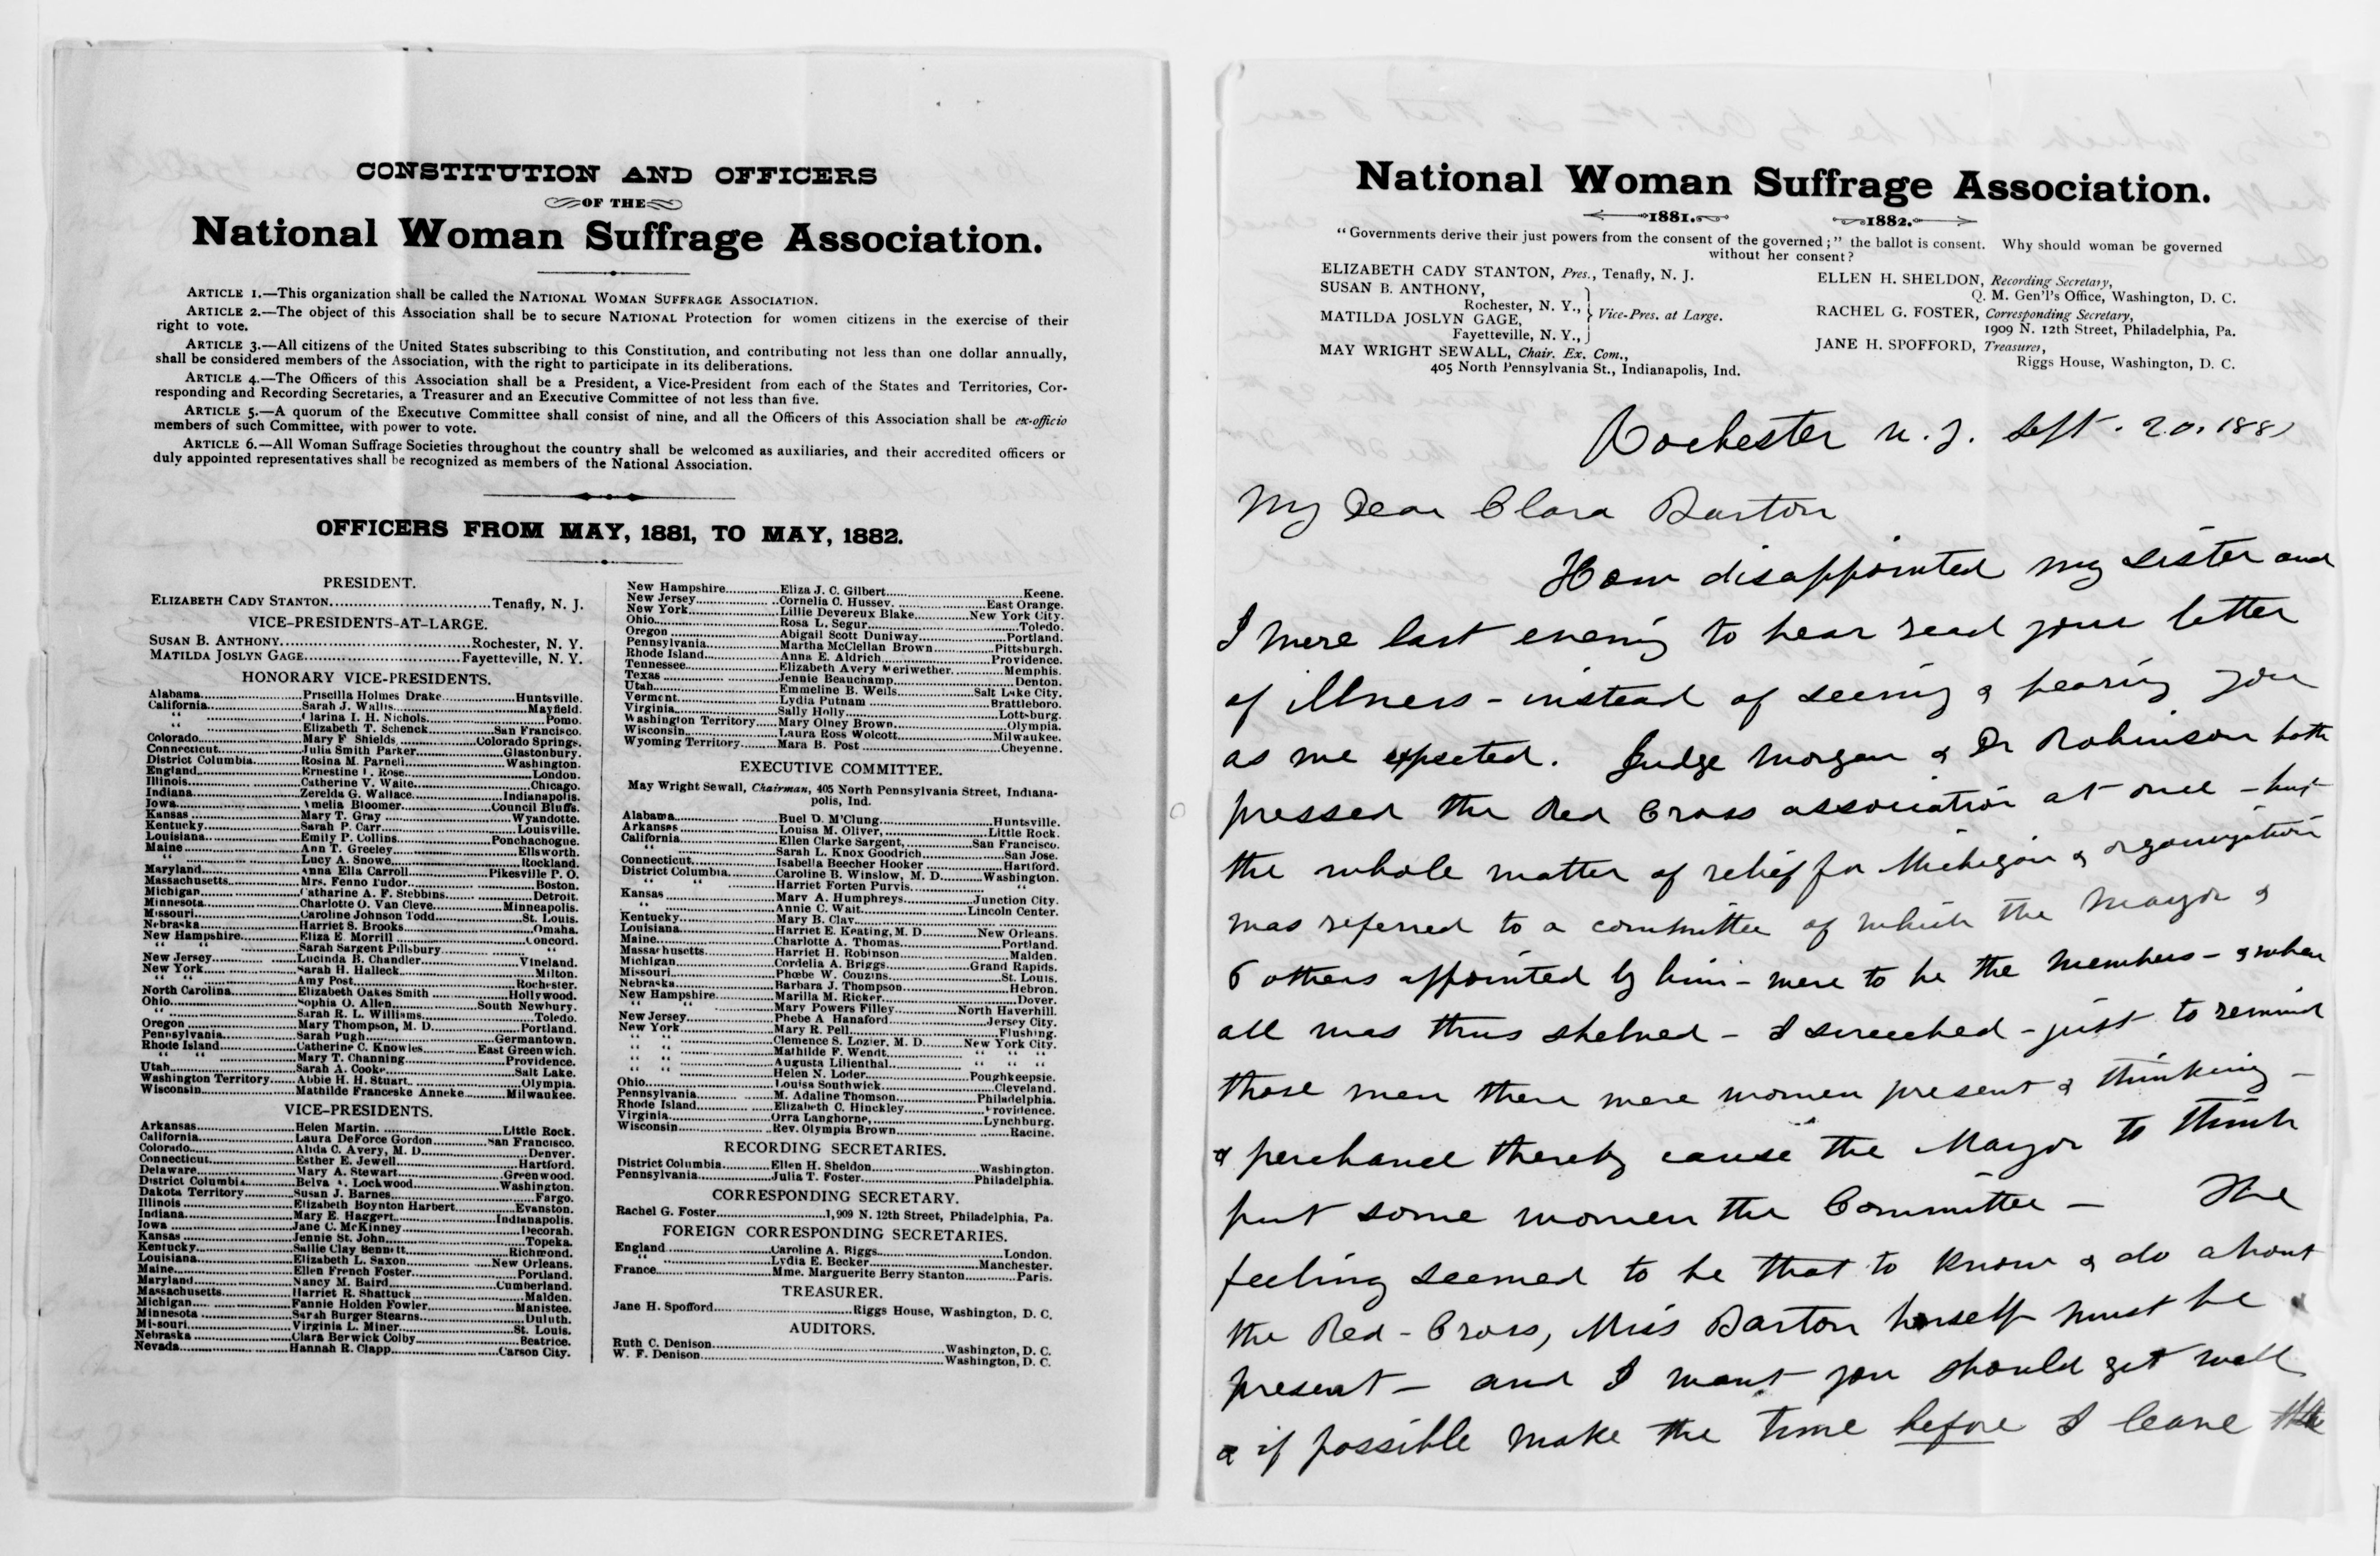 CONSTITUTION AND OFFICERS
OF THE
National Woman Suffrage Association.
ARTICLE 1.—This organization shall be called the NATIONAL WOMAN SUFFRAGE ASSOCIATION.
ARTICLE 2.—The object of this Association shall be to secure NATIONAL Protection for women citizens in the exercise of their
right to vote.
ARTICLE 3.—All citizens of the United States subscribing to this Constitution, and contributing not less than one dollar annually,
shall be considered members of the Association, with the right to participate in its deliberations.
ARTICLE 4.—The Officers of this Association shall be a President, a Vice-President from each of the States and Territories, Cor-
responding and Recording Secretaries, a Treasurer and an Executive Committee of not less than five.
ARTICLE 5.—A quorum of the Executive Committee shall consist of nine, and all the Officers of this Association shall be ex-officio
members of such Committee, with power to vote.
ARTICLE 6.—All Woman Suffrage Societies throughout the country shall be welcomed as auxiliaries, and their accredited officers or
duly appointed representatives shall be recognized as members of the National Association.
OFFICERS FROM MAY, 1881, TO MAY, 1882.
PRESIDENT.
ELIZABETH CADY STANTON....Tenafly, N. J.
VICE-PRESIDENTS-AT-LARGE.
SUSAN B. ANTHONY....Rochester, N. Y.
MATILDA JOSLYN GAGE....Fayetteville, N. Y.
HONORARY VICE-PRESIDENTS.
Alabama....Priscilla Holmes Drake....Huntsville.
California....Sarah J. Wallis....Mayfield.
"....Clarina I. H. Nichols....Pomo.
"....Elizabeth T. Schenck....San Francisco.
Colorado....Mary F Shields....Colorado Springs.
Connecticut....Julia Smith Parker....Glastonbury.
District Columbia....Rosina M. Parnell....Washington.
England....Ernestine L. Rose....London.
Illinois....Catherine V. Waite....Chicago.
Indiana....Zerelda G. Wallace....Indianapolis.
Iowa....Amelia Bloomer....Council Bluffs.
Kansas....Mary T. Gray....Wyandotte.
Kentucky....Sarah P. Carr....Louisville.
Louisiana....Emily P. Collins....Ponchachogue.
Maine....Ann T. Greeley....Ellsworth.
"....Lucy A. Snowe....Rockland.
Maryland....Anna Ella Carroll....Pikesville P. O.
Massachusetts....Mrs. Fenno Tudor....Boston.
Michigan....Catharine A. F. Stebbins....Detroit.
Minnesota....Charlotte O. Van Cleve....Minneapolis.
Missouri....Caroline Johnson Todd....St. Louis.
Nebraska....Harriet S. Brooks....Omaha.
New Hampshire....Eliza E. Morrill....Concord.
" "....Sarah Sargent Pillsbury...."
New Jersey....Lucinda B. Chandler....Vineland.
New York....Sarah H. Halleck....Milton.
" "....Amy Post....Rochester.
North Carolina....Elizabeth Oakes Smith....Hollywood.
Ohio....Sophia O. Allen....South Newbury.
"....Sarah R. L. Williams....Toledo.
Oregon....Mary Thompson, M. D....Portland.
Pennsylvania....Sarah Pugh....Germantown.
Rhode Island....Catherine C. Knowles....East Greenwich.
" "....Mary T. Channing....Providence.
Utah....Sarah A. Cooke....Salt Lake.
Washington Territory....Abbie H. H. Stuart....Olympia.
Wisconsin....Mathilde Franceske Anneke....Milwaukee.
VICE-PRESIDENTS.
Arkansas....Helen Martin....Little Rock.
California....Laura DeForce Gordon....San Francisco.
Colorado....Alida C. Avery, M. D....Denver.
Connecticut....Esther E. Jewell....Hartford.
Delaware....Mary A. Stewart....Greenwood.
District Columbia....Belva A. Lockwood....Washington.
Dakota Territory....Susan J. Barnes....Fargo.
Illinois....Elizabeth Boynton Harbert....Evanston.
Indiana....Mary E. Haggert....Indianapolis.
Iowa....Jane C. McKinney....Decorah.
Kansas....Jennie St. John....Topeka.
Kentucky....Sallie Clay Bennett....Richmond.
Louisiana....Elizabeth L. Saxon....New Orleans.
Maine....Ellen French Foster....Portland.
Maryland....Nancy M. Baird....Cumberland.
Massachusetts....Harriet R. Shattuck....Malden.
Michigan....Fannie Holden Fowler....Manistee.
Minnesota....Sarah Burger Stearns....Duluth.
Missouri....Virginia L. Miner....St. Louis.
Nebraska....Clara Berwick Colby....Beatrice.
Nevada....Hannah R. Clapp....Carson City.
New Hampshire....Eliza J. C. Gilbert....Keene.
New Jersey....Cornelia C. Hussey....East Orange.
New York....Lillie Devereux Blake....New York City.
Ohio....Rosa L. Segur....Toledo.
Oregon....Abigail Scott Duniway....Portland.
Pennsylvania....Martha McClellan Brown....Pittsburgh.
Rhode Island....Anna E. Aldrich....Providence.
Tennessee....Elizabeth Avery Meriwether....Memphis.
Texas....Jennie Beauchamp....Denton.
Utah....Emmeline B. Wells....Salt Lake City.
Vermont....Lydia Putnam....Brattleboro.
Virginia....Sally Holly....Lottsburg.
Washington Territory....Mary Olney Brown....Olympia.
Wisconsin....Laura Ross Wolcott....Milwaukee.
Wyoming Territory....Mara B. Post....Cheyenne.
EXECUTIVE COMMITTEE.
May Wright Sewall, Chairman, 405 North Pennsylvania Street, Indiana-
polis, Ind.
Alabama....Buel D. M'Clung....Huntsville.
Arkansas....Louisa M. Oliver,....Little Rock.
California....Ellen Clarke Sargent,....San Francisco.
"....Sarah L. Knox Goodrich....San Jose.
Connecticut....Isabella Beecher Hooker....Hartford.
District Columbia....Caroline B. Winslow, M. D....Washington.
" "....Harriet Forten Purvis...."
Kansas....Mary A. Humphreys....Junction City.
"....Annie C. Wait....Lincoln Center.
Kentucky....Mary B. Clay....
Louisiana....Harriet E. Keating, M. D....New Orleans.
Maine....Charlotte A. Thomas....Portland.
Massachusetts....Harriet H. Robinson....Malden.
Michigan....Cordelia A. Briggs....Grand Rapids.
Missouri....Phœbe W. Couzins....St. Louis.
Nebraska....Barbara J. Thompson....Hebron.
New Hampshire....Marilla M. Ricker....Dover.
" "....Mary Powers Filley....North Haverhill.
New Jersey....Phebe A Hanaford....Jersey City.
New York....Mary R. Pell....Flushing.
" "....Clemence S. Lozier, M. D....New York City.
" "....Mathilde F. Wendt...." " "
" "....Augusta Lilienthal...." " "
" "....Helen N. Loder....Poughkeepsie.
Ohio....Louisa Southwick....Cleveland.
Pennsylvania....M. Adaline Thomson....Philadelphia.
Rhode Island....Elizabeth C. Hinckley....Providence.
Virginia....Orra Langhorne,....Lynchburg.
Wisconsin....Rev. Olympia Brown....Racine.
RECORDING SECRETARIES.
District Columbia....Ellen H. Sheldon....Washington.
Pennsylvania....Julia T. Foster....Philadelphia.
CORRESPONDING SECRETARY.
Rachel G. Foster....1,909 N. 12th Street, Philadelphia, Pa.
FOREIGN CORRESPONDING SECRETARIES.
England....Caroline A. Biggs....London.
"....Lydia E. Becker....Manchester.
France....Mme. Marguerite Berry Stanton....Paris.
TREASURER.
Jane H. Spofford....Riggs House, Washington, D. C.
AUDITORS.
Ruth C. Denison....Washington, D. C.
W. F. Denison....Washington, D. C.
National Woman Suffrage Association.
1881. 1882.
"Governments derive their just powers from the consent of the governed;" the ballot is consent. Why should woman be governed
without her consent?
ELIZABETH CADY STANTON, Pres., Tenafly, N. J.
SUSAN B. ANTHONY,
Rochester, N. Y.,
MATILDA JOSLYN GAGE,
Fayetteville, N. Y.,
Vice-Pres. at Large.
MAY WRIGHT SEWALL, Chair. Ex. Com.,
405 North Pennsylvania St., Indianapolis, Ind.
ELLEN H. SHELDON, Recording Secretary,
Q. M. Gen'l's Office, Washington, D. C.
RACHEL G. FOSTER, Corresponding Secretary,
1909 N. 12th Street, Philadelphia, Pa.
JANE H. SPOFFORD, Treasurer,
Riggs House, Washington, D. C.
Rochester N. Y. Sept. 20. 1881
My Dear Clara Barton
How disappointed my sister and
I were last evening to hear read your letter
of illness - instead of seeing & hearing you
as we expected. Judge Morgan & Dr Robinson both
pressed the Red Cross association at once - but
the whole matter of relief for Michigan & organization
was referred to a committee of which the Mayor &
6 others appointed by him - were to be the members - & when
all was thus shelved - I screeched - just to remind
those men there were women present & thinking -
& perchance thereby cause the Mayor to think
put some women the Committee - The
feeling seemed to be that to know & do about
the Red-Cross, Miss Barton herself must be
present - and I want you should get well
& if possible make the time before I leave the